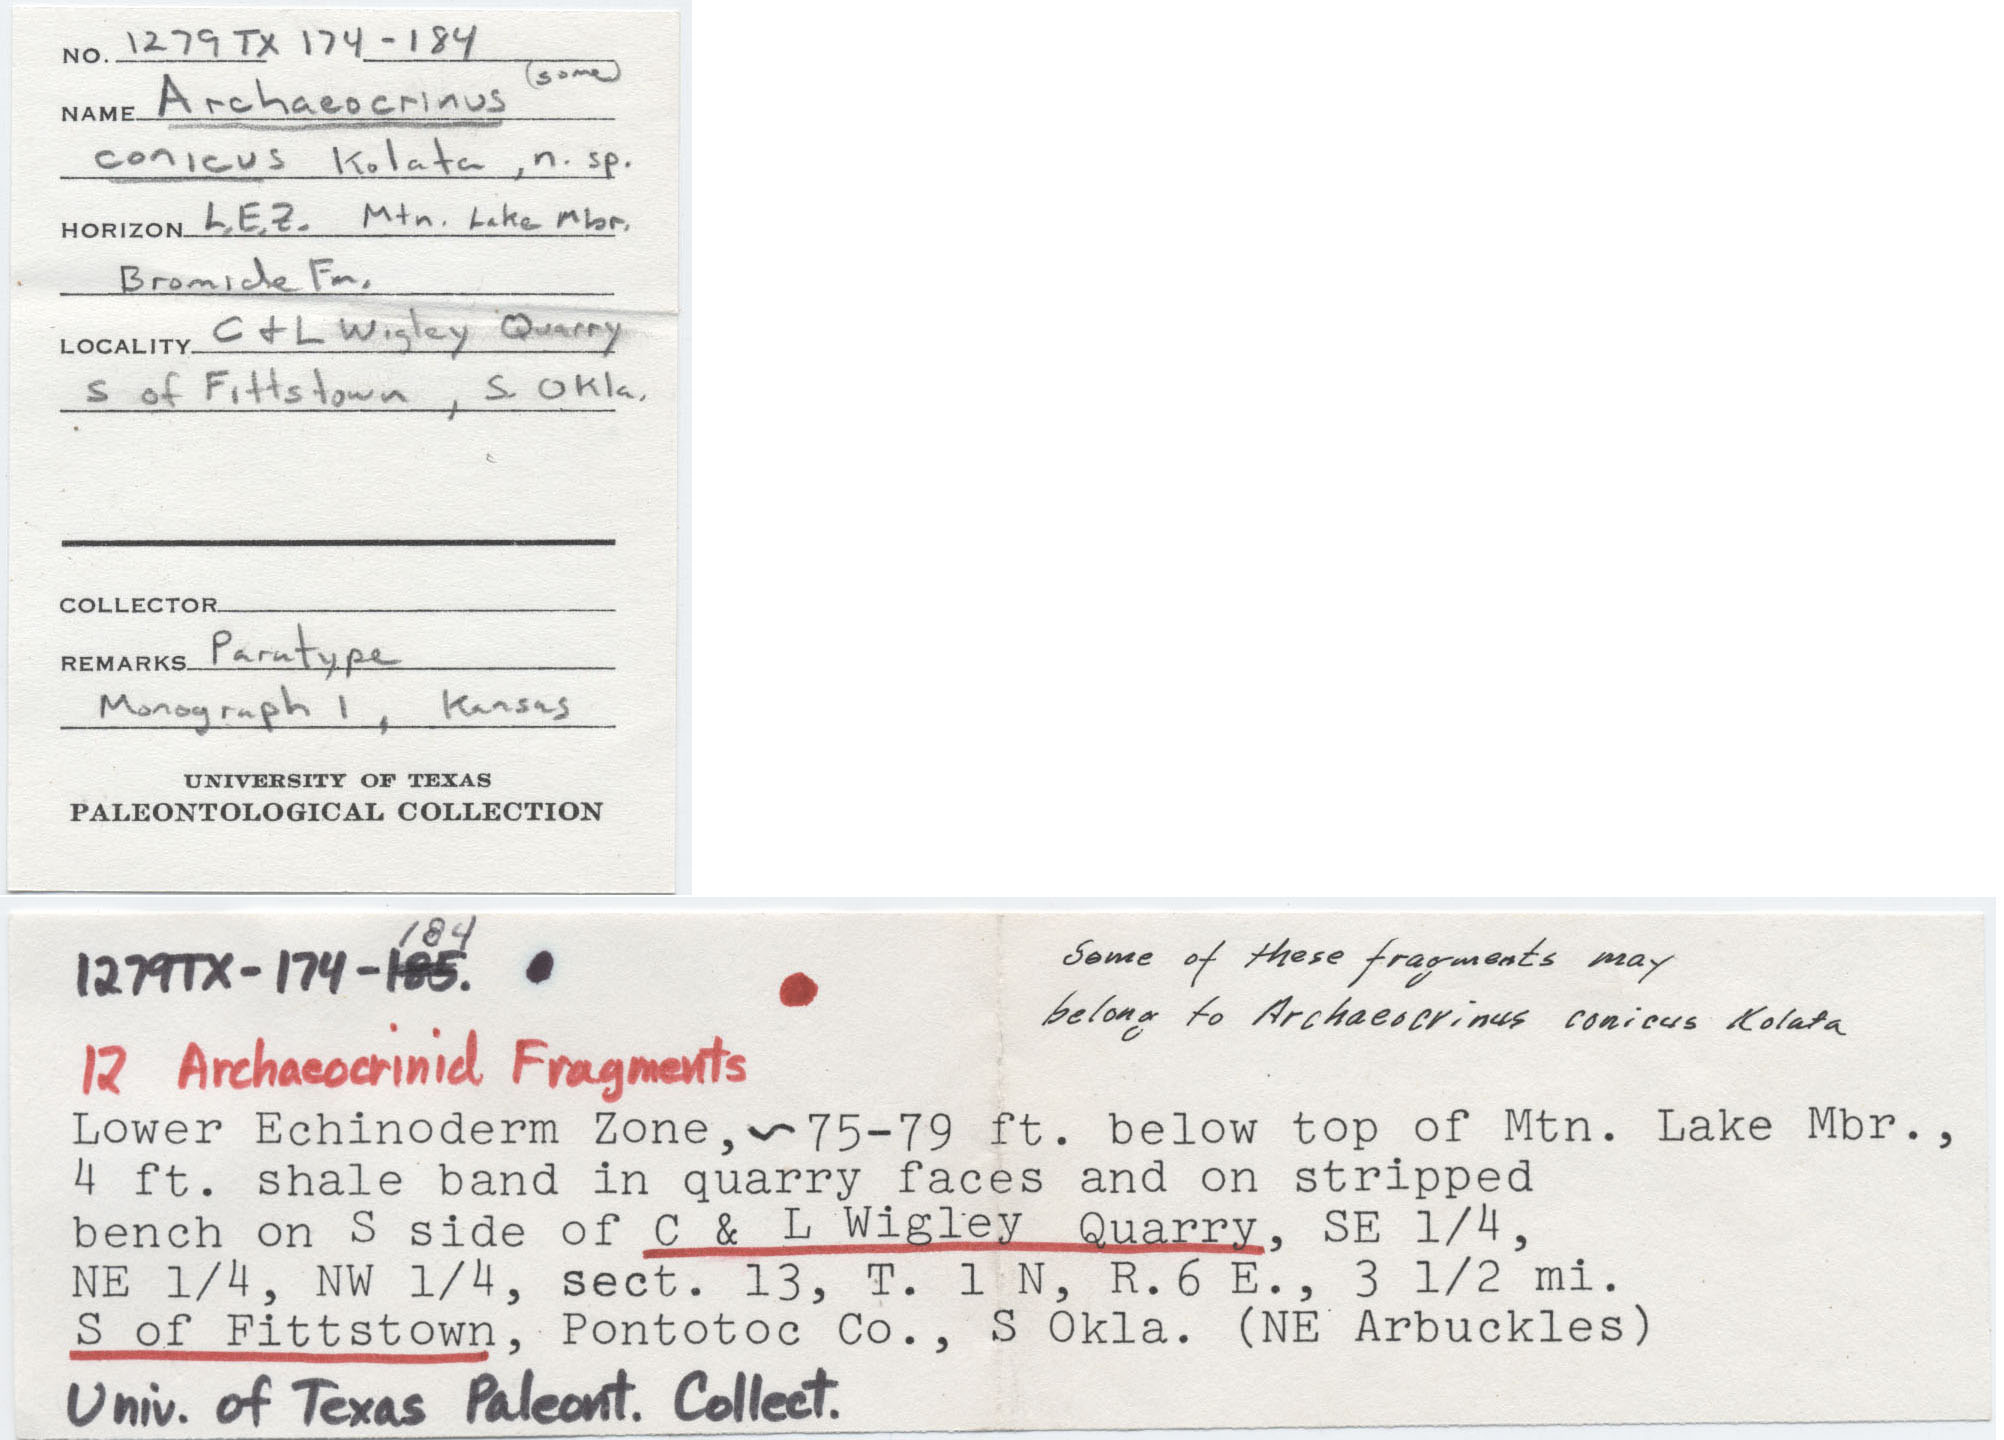 NO. 1279TX 174-184
(some)
NAME Archaeocrinus
conicus Kolata, n. sp.
HORIZON L.E.Z. Mtn. Lake Mbr.
Bromide Fm.
LOCALITY C & L Wigley Quarry
S of Fittstown, S. Okla.
COLLECTOR
REMARKS Paratype
Monograph 1, Kansas
UNIVERSITY OF TEXAS
PALEONTOLOGICAL COLLECTION
184
1279TX-174-185.
Some of these fragments may
belong to Archaeocrinus conicus Kolata
12 Archaeocrinid Fragments
Lower Echinoderm Zone, ~75-79 ft. below top of Mtn. Lake Mbr.,
4 ft. shale band in quarry faces and on stripped
bench on S side of C & L Wigley Quarry, SE 1/4,
NE 1/4, NW 1/4, sect. 13, T. 1 N, R.6 E., 3 1/2 mi.
S of Fittstown, Pontotoc Co., S Okla. (NE Arbuckles)
Univ. of Texas Paleont. Collect.